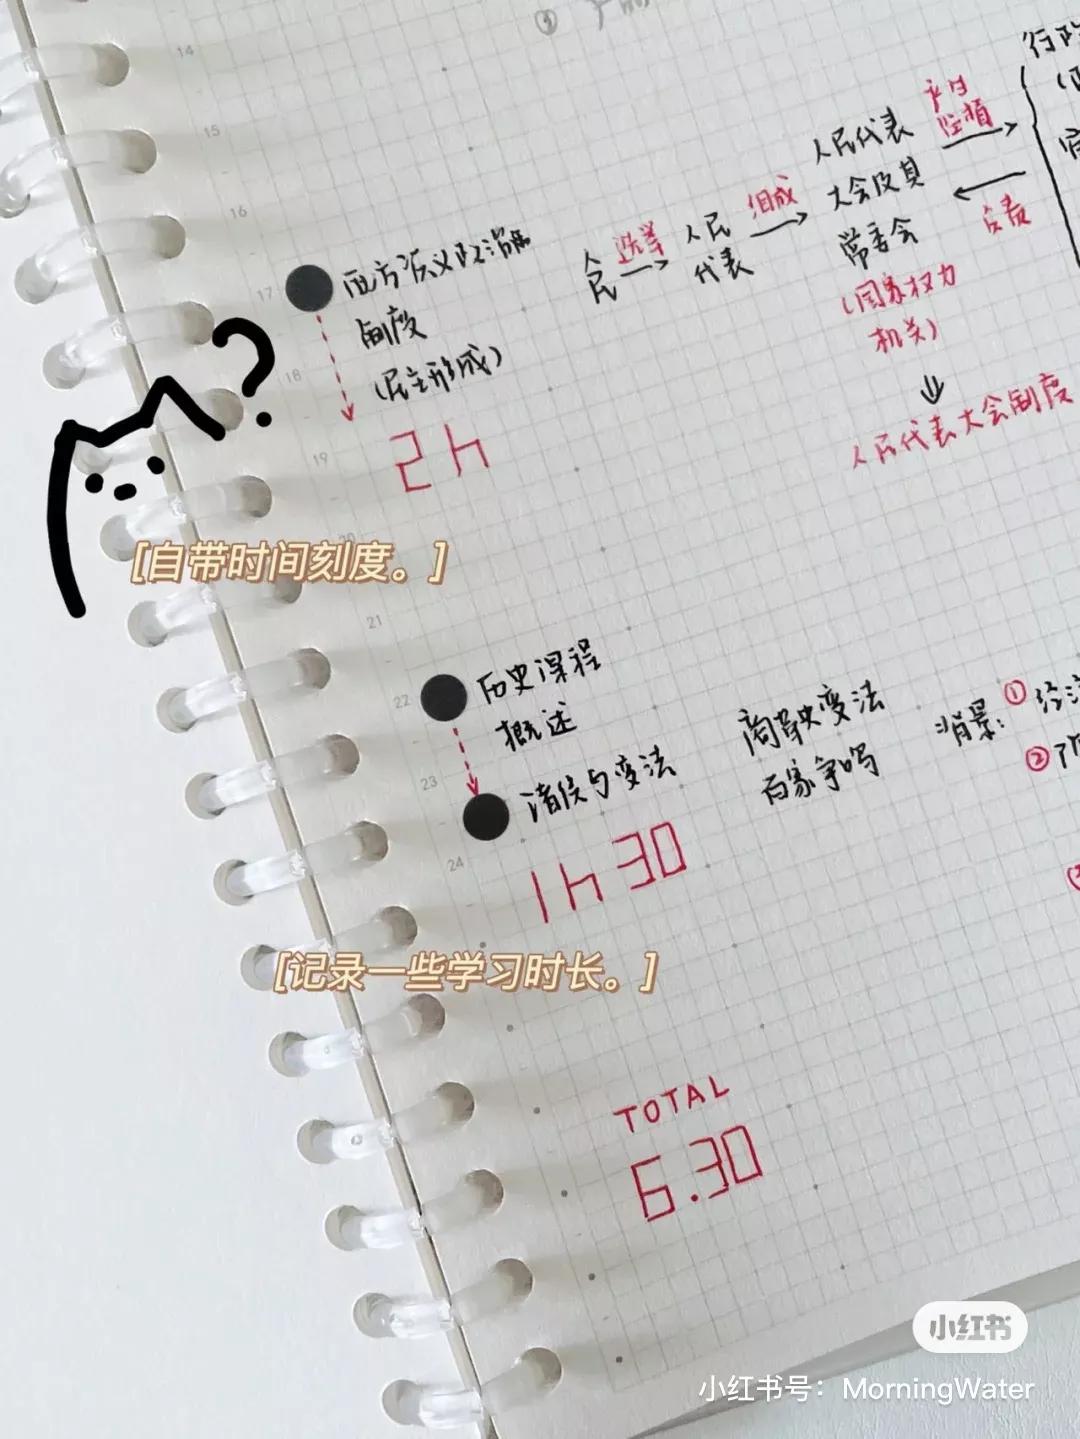 14
15
16
17
18
19
20
21
22
23
24
人民
选举
人民
代表
组成
人民代表
大会及其
常委会
(国家权力
机关)
人民代表大会制度
负责
行政
制度
(民主形成)
2h
?
[自带时间刻度。]
历史课程
概述
诸侯与变法
商鞅变法
百家争鸣
背景:
①
②
1h30
[记录一些学习时长。]
TOTAL
6.30
小红书
小红书号：MorningWater